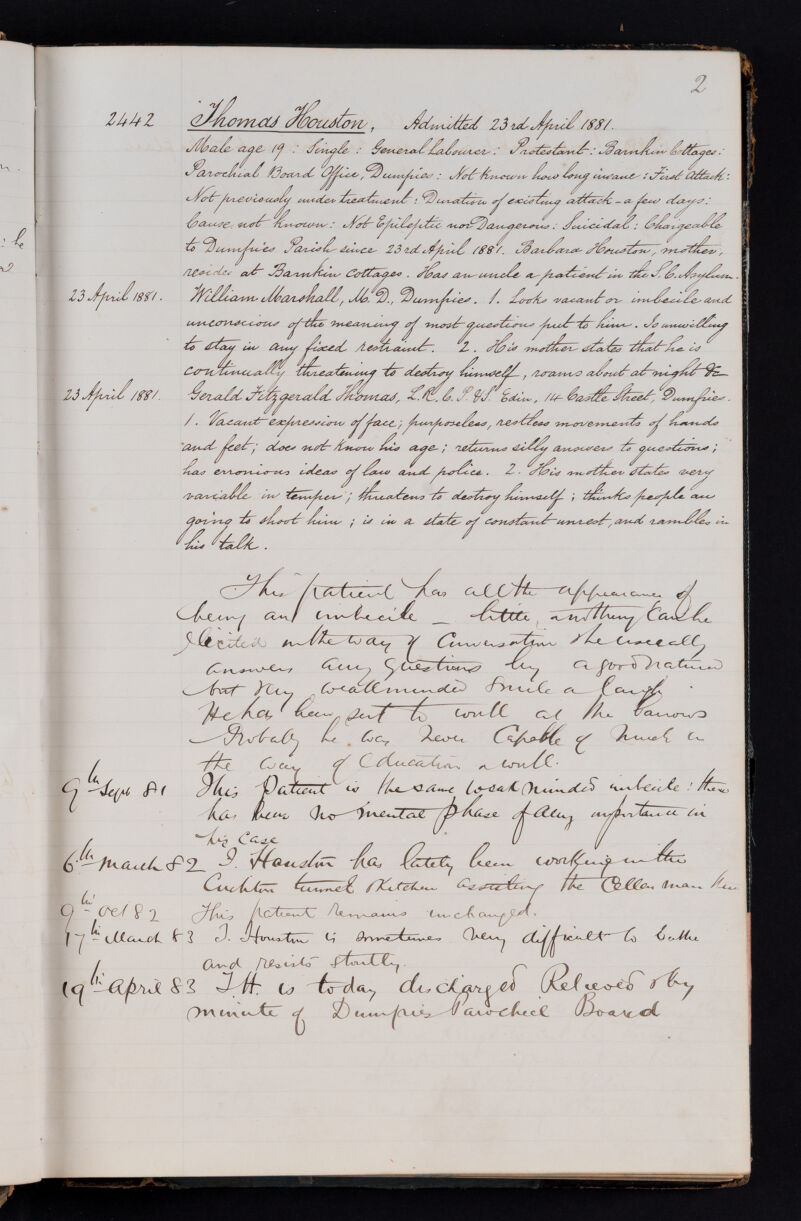 2
2442 Thomas Houston, Admitted 23rd April 1881.
Male age 19 : Single : General Labourer : Protestant : Barnkin Cottages :
Parochial Board Office, Dumfries : Not known how long insane : First Attack :
Not previously under treatment : Duration of existing attack - a few days :
Cause not known : Not Epileptic nor Dangerous : Suicidal : Chargeable
to Dumfries Parish since 23rd April 1881. Barbara Houston, mother,
resides at Barnkin Cottages. Has an uncle a patient in the S. C. Asylum.
23 April 1881. William Marshall, M.D., Dumfries. 1. Looks vacant or imbecile and
unconscious of the meaning of most questions put to him. Is unwilling
to stay in any fixed restraint. 2. His mother states that he is
continually threatening to destroy himself, roams about at night &c
23 April 1881. Gerald Fitzgerald Thomas, L.R.C.P. &S. Edin, 14 Castle Street, Dumfries.
1. Vacant expression of face; purposeless, restless movements of hands
and feet; does not know his age; returns silly answers to questions;
has erronious ideas of law and police. 2. His mother states very
variable in temper; threatens to destroy himself; thinks people are
going to shoot him; is in a state of constant unrest, and rambles in
his talk.
This patient has all the appearance of
being an imbecile - little, anything can be
elicited in the way of conversation & he usually
answers any questions by a good natured
but very weakminded smile a laugh.
He has been sent to work at the barrows
Probably he was never capable of much in
the way of education or work.
9th Sept 81 This Patient is the same weak minded imbecile : there
has been no mental phase of any importance in
his case
6th March 82 T. Houston has lately been working in the
Crichton tunnel & kitchen assisting the Cellar man there
9th Oct 82 This patient remains unchanged.
17th March 83 T. Houston is sometimes very difficult to bathe
and resists stoutly.
19th April 83 T.H. is today discharged Relieved & by
minute of Dumfries Parochial Board